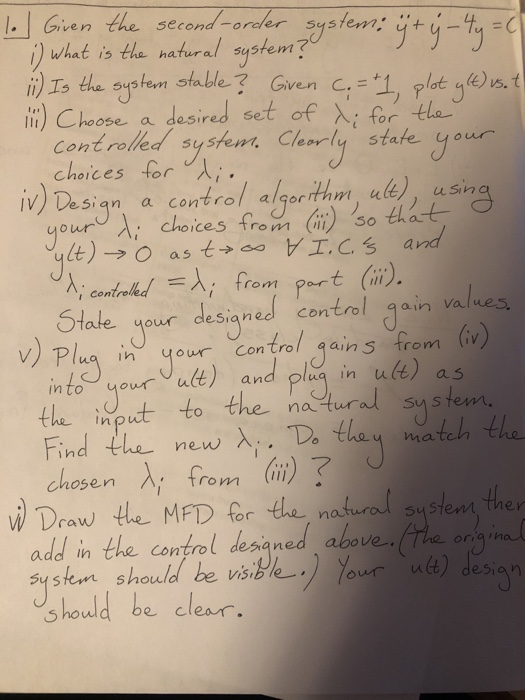 1. Given the second-order system: ÿ + ẏ - 4y = C
i) What is the natural system?
ii) Is the system stable? Given Cᵢ = +1, plot y(t) vs. t
iii) Choose a desired set of λᵢ for the
controlled system. Clearly state your
choices for λᵢ.
iv) Design a control algorithm, u(t), using
your λᵢ choices from (iii) so that
y(t) → 0 as t → ∞ ∀ I.C.s and
λᵢ controlled = λᵢ from part (iii).
State your designed control gain values.
v) Plug in your control gains from (iv)
into your u(t) and plug in u(t) as
the input to the natural system.
Find the new λᵢ. Do they match the
chosen λᵢ from (iii)?
vi) Draw the MFD for the natural system, then
add in the control designed above. (The original
system should be visible.) Your u(t) design
should be clear.